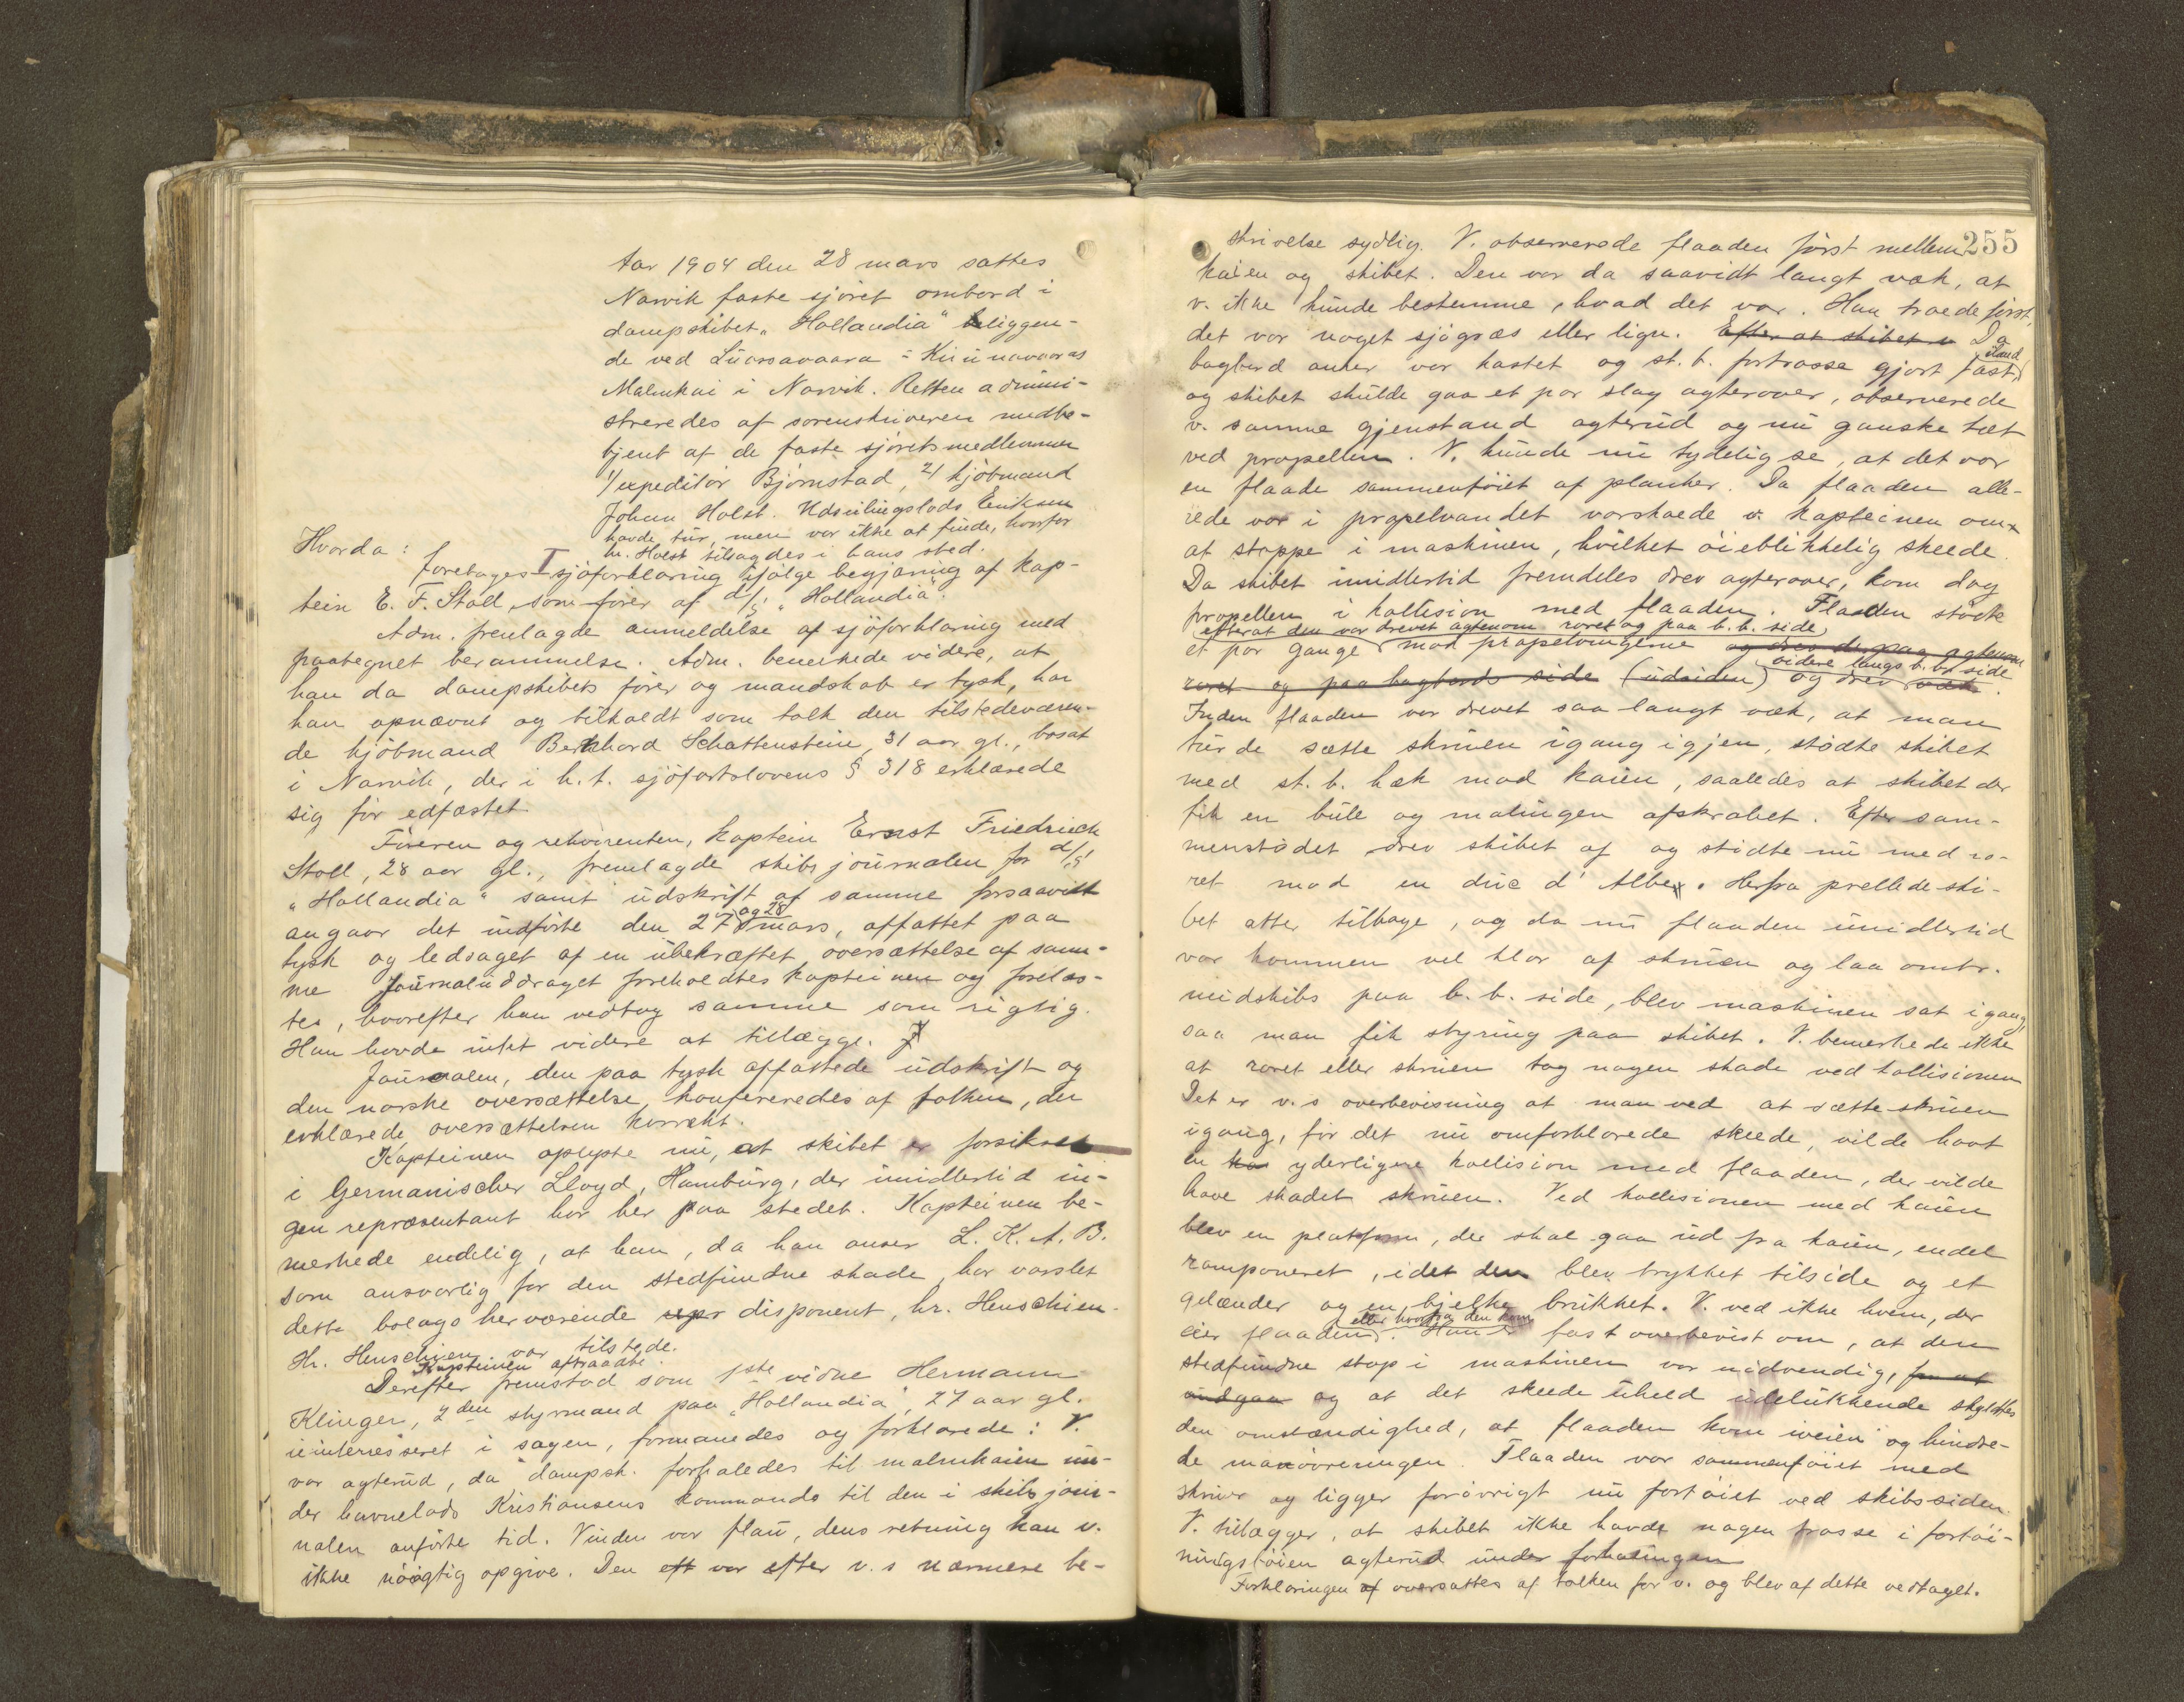 Aar 1904 den 28 mars sattes
Narvik faste sjøret ombord i
dampskibet "Hollandia" beliggen-
de ved Luossavaara = Kiirunavaaras
Malmkai i Narvik. Retten admini-
streredes af sorenskriveren medbe-
tjent af de faste sjøretsmedlemmer
1/ expeditør Bjørnstad, 2/ kjøbmand
Johan Holst. Udskilingslods Eriksen
havde tur, men var ikke at finde, hvorfor
hr. Holst tilsagdes i hans sted.
Hvorda:
foretoges I sjøforklaring ifølge begjæring af kap-
tein E. F. Stoll som fører af d/s "Hollandia".
Adm. fremlagde anmeldelse af sjøforklaring med
paategnet berammelse. Adm. bemerkede videre, at
han da dampskibets fører og mandskab er tysk, har
han opnævnt og tilkaldt som tolk den tilstedeværen-
de kjøbmand Bernhard Schattenstein, 31 aar gl., bosat
i Narvik, der i h.t. sjøfartslovens § 318 erklærede
sig før edfæstet.
Føreren og rekvirenten, kaptein Ernst Friedrich
Stoll, 28 aar gl., fremlagde skibsjournalen for d/s
"Hollandia" samt udskrift af samme forsaavidt
angaar det indførte den 27 og 28 mars, affattet paa
tysk og ledsaget af en ubekræftet oversættelse af sam-
me Journaluddraget foreholdtes kapteinen og forelæs-
tes, hvorefter han vedtog samme som rigtig.
Han havde intet videre at tillægge.
Journalen, den paa tysk affattede udskrift og
den norske oversættelse konfereredes af tolken, der
erklærede oversættelsen korrekt.
Kapteinen oplyste nu, at skibet er forsikret
i Germanischer Lloyd, Hamburg, der imidlertid in-
gen repræsentant har her paa stedet. Kapteinen be-
merkede endelig, at han, da han anser L. K. A. B.
som ansvarlig for den stedfundne skade, har varslet
dette bolags herværende repr disponent, hr. Henschien.
Hr. Henschien var tilstede.
Kapteinen aftraadte.
Derefter fremstod som 1ste vidne Hermann
Klinger, 2den styrmand paa "Hollandia", 27 aar gl.
uinteresseret i sagen, formanedes og forklarede: V.
var agterud, da dampsk. forhaledes til malmkaien un-
der havnelods Kristiansens kommando til den i skibsjour-
nalen anførte tid. Vinden var flau, dens retning kan v.
ikke nøiagtig opgive. Den eft var efter v.s nærmere be-
255
skrivelse sydlig. V. observerede flaaden først mellem
kaien og skibet. Den var da saavidt langt væk, at
v. ikke kunde bestemme, hvad det var. Han troede først,
det var noget sjøgræs eller lign. Efter at skibet v Da
bagbord anker var kastet og st. b. fortrosse gjort fast iland
og skibet skulde gaa et par slag agterover, observerede
v. samme gjenstand agterud og nu ganske tæt
ved propellen. V. kunde nu tydelig se, at det var
en flaade sammenføiet af planker. Da flaaden alle-
rede var i propelvandet varskoede v. kapteinen om
at stoppe i maskinen, hvilket øieblikkelig skeede.
Da skibet imidlertid fremdeles drev agterover, kom dog
propellen i kollision med flaaden. Flaaden stødte
efterat den var drevet agtenom roret og paa b. b. side
et par gange mod propelvingerne og drev derpaa agtenom
roret og paa bagbords side (udsiden) og drev væk videre langs b. b. side.
Inden flaaden var drevet saa langt væk, at man
turde sætte skruen igang igjen, stødte skibet
med st. b. hæk mod kaien, saaledes at skibet der
fik en bule og malingen afskrabet. Efter sam-
menstødet drev skibet af og stødte nu med ro-
ret mod en duc d'Albe. Herfra prellede ski-
bet atter tilbage, og da nu flaaden imidlertid
var kommen vel klar af skruen og laa omtr.
midskibs paa b. b. side, blev maskinen sat igang,
saa man fik styring paa skibet. V. bemerkede ikke
at roret eller skruen tog nogen skade ved kollisionen
Det er v.s overbevisning at man ved at sætte skruen
igang, før det nu omforklarede skeede, vilde havt
en ko yderligere kollision med flaaden, der vilde
have skadet skruen. Ved kollisionen med kaien
blev en platform, der skal gaa ud fra kaien, endel
ramponeret, idet den blev trykket tilside og et
gelænder og en bjelke brukket. V. ved ikke hvem, der
eier flaaden eller hvorfra den kom. Han er fast overbevist om, at den
stedfundne stop i maskinen var nødvendig, for at
undgaa og at det skeede uheld udelukkende skyldtes
den omstændighed, at flaaden kom iveien og hindre-
de manøvreringen. Flaaden var sammenføiet med
skruer og ligger forøvrigt nu fortøiet ved skibssiden.
V. tillægger, at skibet ikke havde nogen trosse i fortøi-
ningstøien agterud under forhalingen
Forklaringen af oversattes af tolken for v. og blev af dette vedtaget.